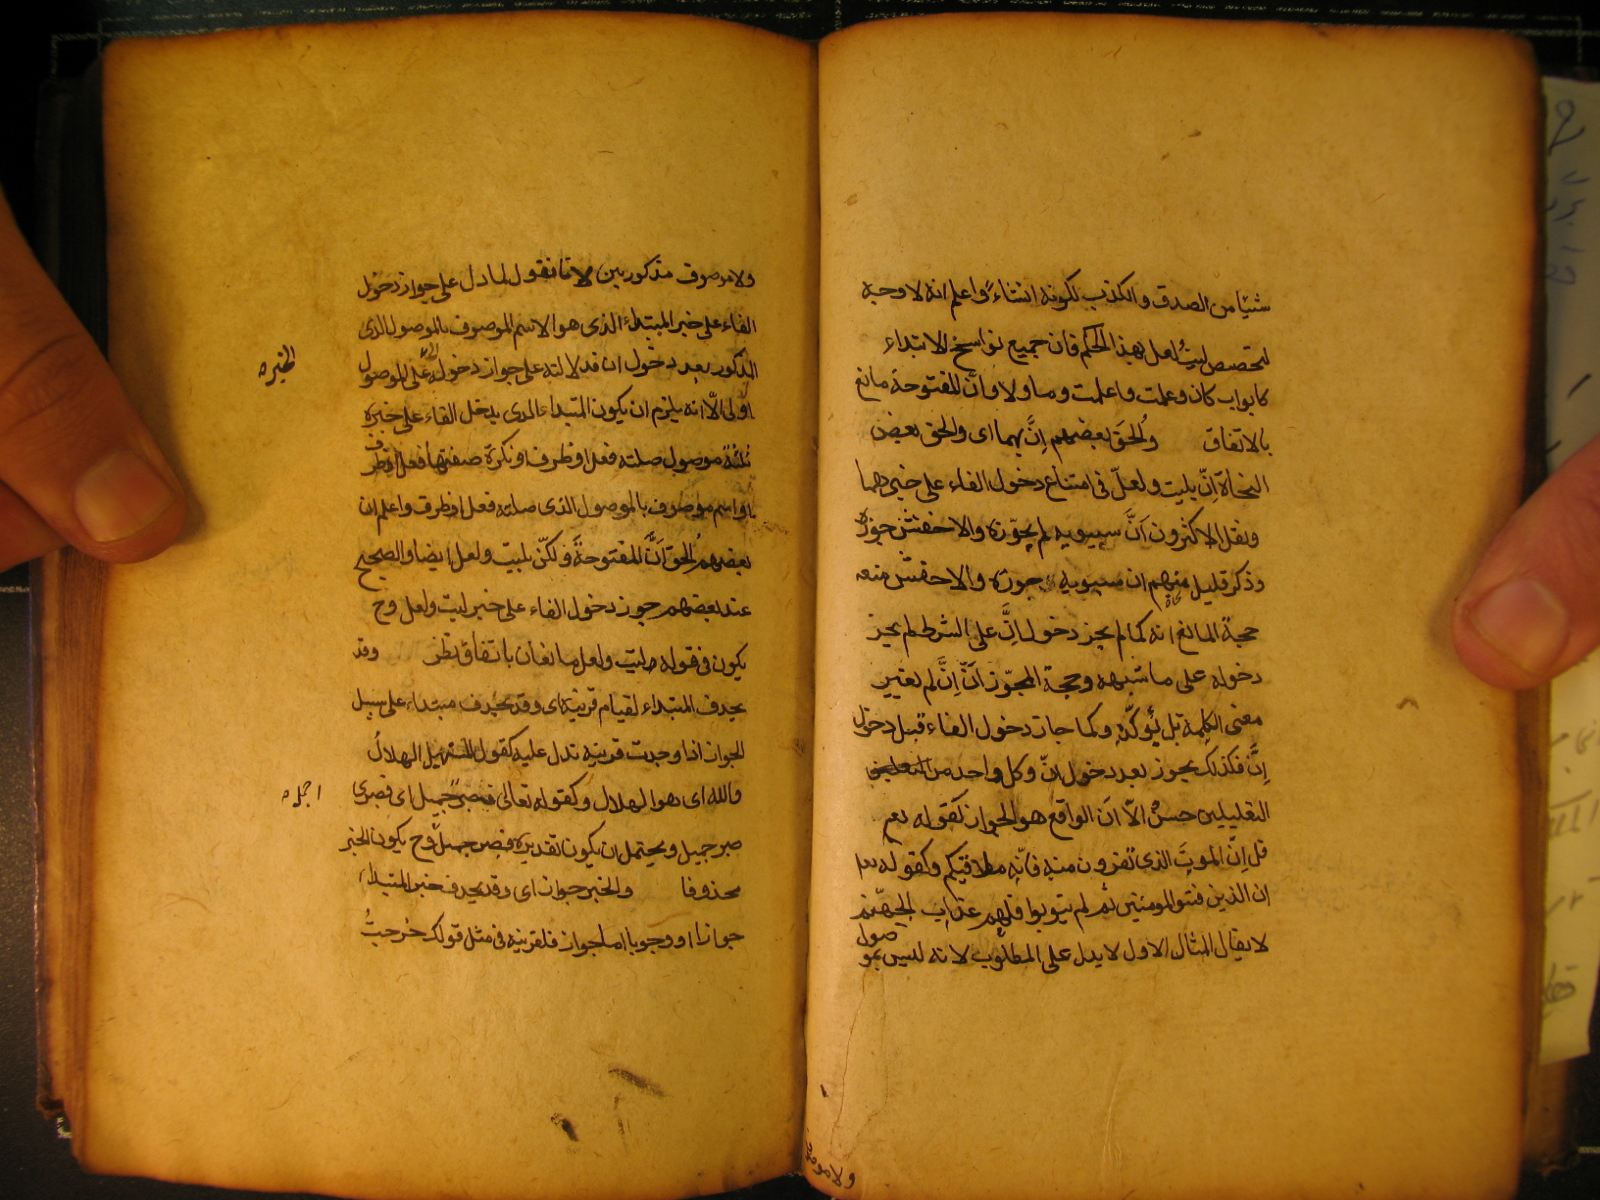 شيئا من الصدق والكذب لكونه انشاء واعلم انه لا وجه
لتخصيص ليت ولعل بهذا الحكم فان جميع نواسخ الابتداء
كابواب كان وعلمت واعلمت وما ولا وانّ المفتوحة مانع
بالاتفاق والحق بعضهم اِنَّ بهما اى والحق بعض
النحاة اِنّ بليت ولعلّ فى امتناع دخول الفاء على خبرهما
ونقل الاكثرون انَّ سيبويه لم يجوّزه والاخفش جوزه
وذكر قليل منهم ان سيبويه جوزه والاخفش منعه
حجة المانع انه كما لم يجز دخول اِنَّ على الشرط لم يجز
دخوله على ما شبهه وحجة المجوّز انّ اِنَّ لم تغير
معنى الكلمة بل يؤكده وكما جاز دخول الفاء قبل دخول
اِنَّ فكذلك يجوز بعد دخول انّ وكل واحد من
التعليلين حسنٌ الاّ انّ الواقع هو الجواز كقوله تع
قل اِنّ الموتَ الذى تفرون منه فانّه ملاقيكم وكقوله تع
ان الذين فتنوا المومنين ثم لم يتوبوا فلهم عذاب الجهنم
لا يقال المثال الاول لا يدل على المطلوب لانه ليس بمو
صول
ولا موصوف
ولا موصوف مذكورين لانا نقول لما دل على جواز دخول
الفاء على خبر المبتداء الذى هو الاسم الموصوف بالموصول الذى
المذكور بعد دخول ان فدلالته على جواز دخوله على الموصول
اولى الاّ انه يلزم ان يكون المبتداء الذى يدخل الفاء على خبره
الخبره
ثلثة موصول صلته فعل او ظرف او نكرة صفتها فعل او ظرف
او اسم موصوف بالموصول الذى صلته فعل او ظرف واعلم ان
بعضهم الحق انَّ المفتوحةَ ولكنّ بليت ولعل ايضا والصحيح
عند بعضهم جوز دخول الفاء على خبر ليت ولعل وح
يكون فى قوله وليت ولعل مانعان باتفاق نظر وقد
يحذف المبتداء لقيام قرينة اى وقد يحذف مبتداء على سبيل
الجواز اذا وجدت قرينة تدل عليه كقول المستهل الهلالُ
والله اى هو الهلال وكقوله تعالى فصبرٌ جميل اى فصبرى
صبر جميل ويحتمل ان يكون تقديره فصبر جميل وح يكون الخبر
محذوفا والخبر جوازا اى وقد يحذف خبر المبتداء
جوازا او وجوبا اما جواز فلقرينة فى مثل قولك خرجتُ